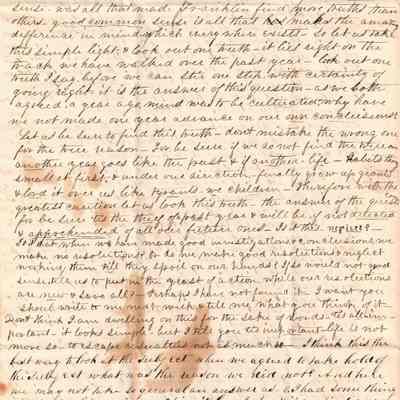 sense - was all that made Franklin find more truths than
others. good common sense is all that makes the amazing
difference in minds which every where exists - So let us take
this simple light, & look out one truth - it lies right on the
track we have walked over the past year - look out one
truth I say, before we can stir one step with certainty of
going right - it is the answer of this question - as we both
agreed a year ago, mind was to be cultivated, why have
we not made one years advance on our own conclusions?
Let us be sure to find this truth - dont mistake the wrong one
for the true reason - For be sure if we do not find the reason
another year goes like the past & if another - life - Habits they
small at first, & under one direction - finally grow up giants
& lord it over us like tyrants. we children - Therefore with the
greatest caution let us look this truth - the answer of the question
for be sure tis the thief of past year & will be if not detected
& apprehended of all our future ones - Is it this neglect?
Is it that when we have made good investigations & conclusions we
make no resolutions? or do we make good resolutions & neglect
working them till they spoil on our hands? If so would not good
sense tell us to put in the yeast of action while our resolutions
are new & save all? - Perhaps I have not found it. I want you
should write to me & tell me what you think of it.
Dont think I am dwelling on this for the sake of words - tis all im-
portant - it looks simple - but I tell you to us plant life is not
more so - to escape is as much - I think this the
best way to look at the subject when we agreed to take hold of
this subject what was the reason we did not? And here
we may not take so general an answer as "I had some thing